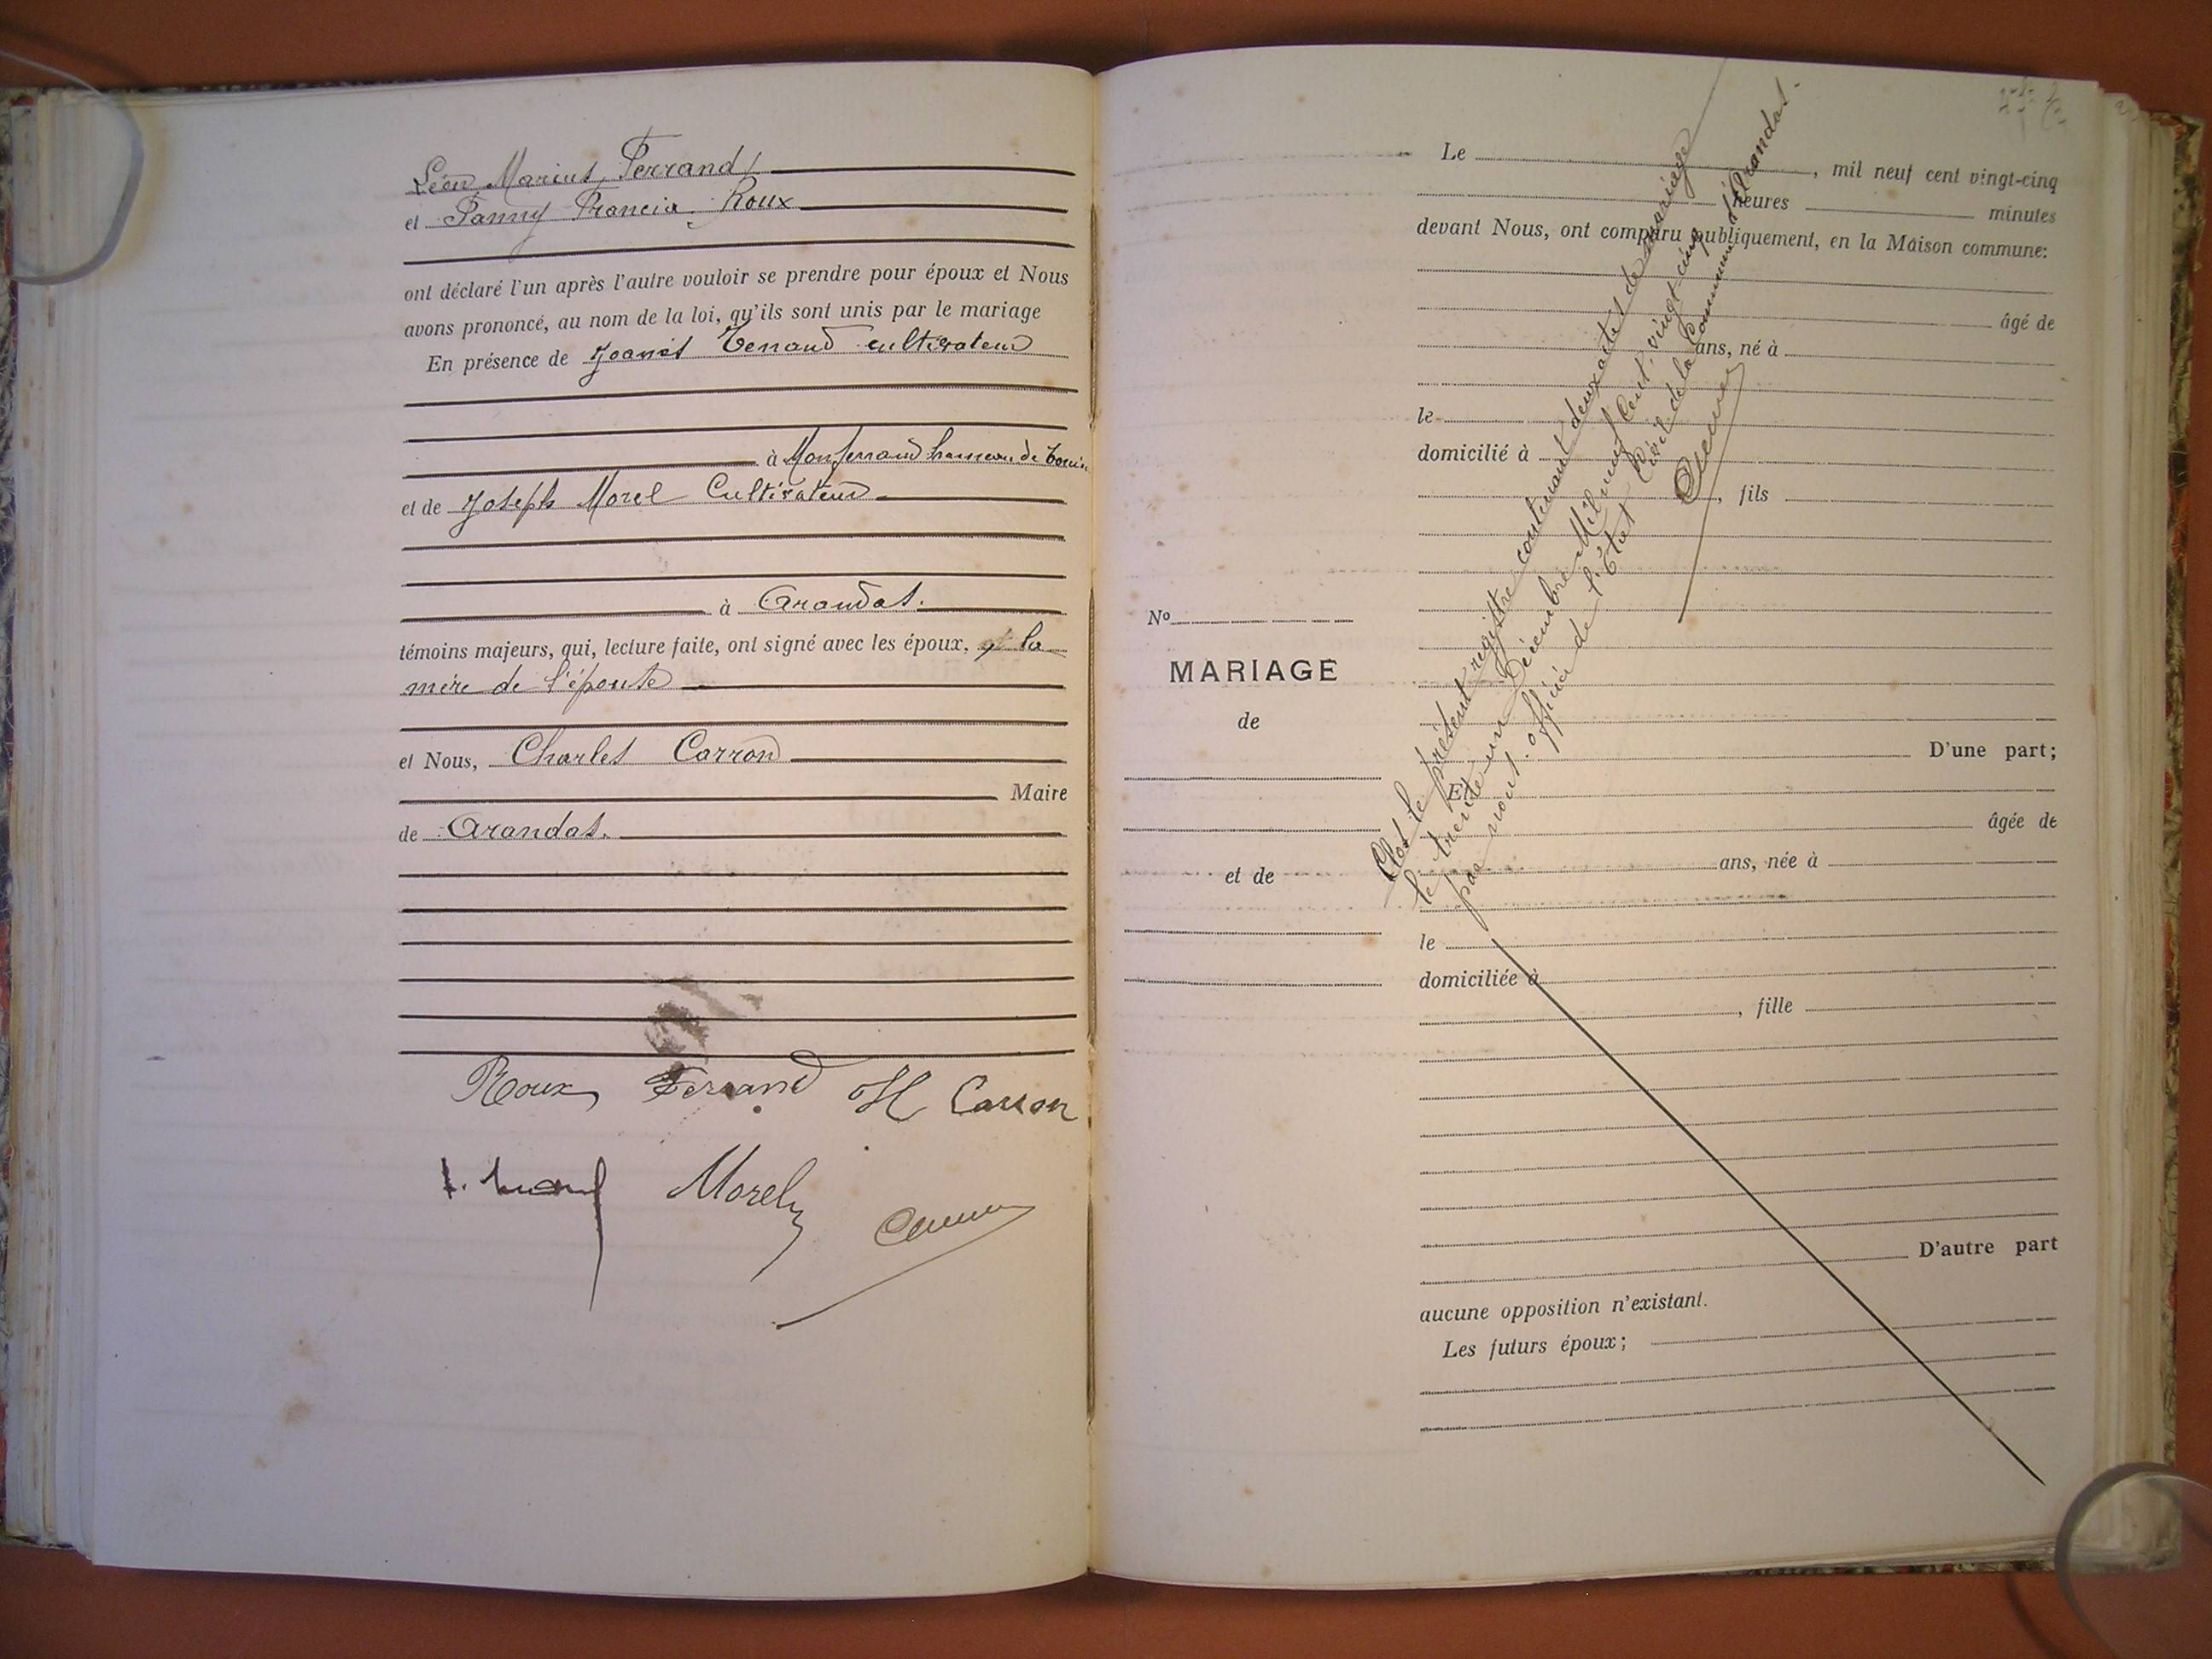 Léon Marius Ferrand
et Fanny Francia Roux
ont déclaré l'un après l'autre vouloir se prendre pour époux et Nous
avons prononcé, au nom de la loi, qu'ils sont unis par le mariage
En présence de Joanès Tenand cultivateur
à Monferrand hameau de Torcieu
et de Joseph Morel Cultivateur
à Arandas.
témoins majeurs, qui, lecture faite, ont signé avec les époux, et la
mère de l'épouse
et Nous, Charles Carron
Maire
de Arandas.
Roux Ferrand H Carron
Morel
Le , mil neuf cent vingt-cinq
heures minutes
devant Nous, ont comparu publiquement, en la Maison commune:
âgé de
ans, né à
le
domicilié à
, fils
No
MARIAGE
de
et de
D'une part;
Et
âgée de
ans, née à
le
domiciliée à
, fille
D'autre part
aucune opposition n'existant.
Les futurs époux;
Clos le présent registre contenant deux actes de mariage
le trente un Décembre Mil neuf Cent vingt-cinq
par nous. officier de l'état Civil de la Commune d'Arandas.